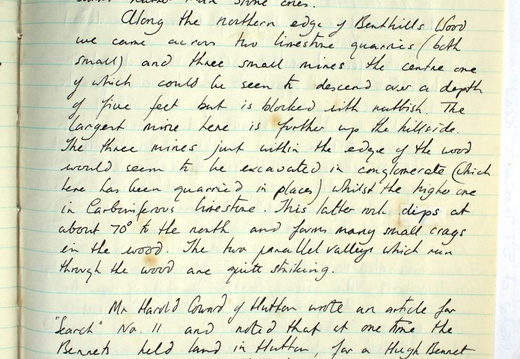 rather than stone ones.
Along the northern edge of Benthills Wood
we came across two limestone quarries (both
small) and three small mines the centre one
of which could be seen to descend over a depth
of five feet but is blocked with rubbish. The
largest mine here is further up the hillside.
The three mines just within the edge of the wood
would seem to be excavated in conglomerate (which
here has been quarried in places) whilst the higher one
in Carboniferous limestone. This latter rock dips at
about 70° to the north and forms many small crags
in the wood. The two parallel valleys which run
through the wood are quite striking.
Mr Harold Coward of Hutton wrote an article for
"Search" No. 11 and noted that at one time the
Bennets held land in Hutton, for a Hugh Bennet